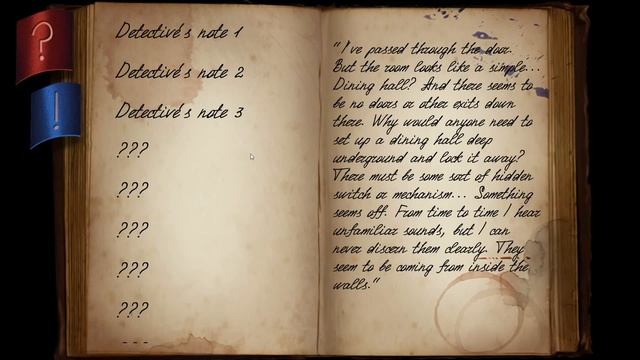 ?
!
Detective's note 1
Detective's note 2
Detective's note 3
???
???
???
???
???
---
"I've passed through the door.
But the room looks like a simple...
Dining hall? And there seems to
be no doors or other exits down
there. Why would anyone need to
set up a dining hall deep
underground and lock it away?
There must be some sort of hidden
switch or mechanism... Something
seems off. From time to time I hear
unfamiliar sounds, but I can
never discern them clearly. They
seem to be coming from inside the
walls."